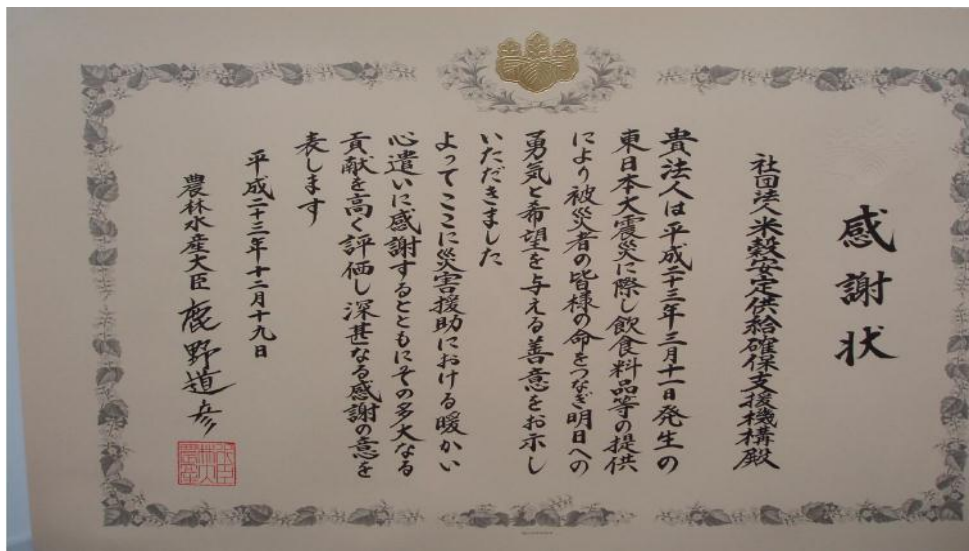 感謝状
社団法人米穀安定供給確保支援機構殿
貴法人は平成二十三年三月十一日発生の
東日本大震災に際し飲食料品等の提供
により被災者の皆様の命をつなぎ明日への
勇気と希望を与える善意をお示し
いただきました
よってここに災害援助における暖かい
心遣いに感謝するとともにその多大なる
貢献を高く評価し深甚なる感謝の意を
表します
平成二十三年十二月十九日
農林水産大臣 鹿野道彦